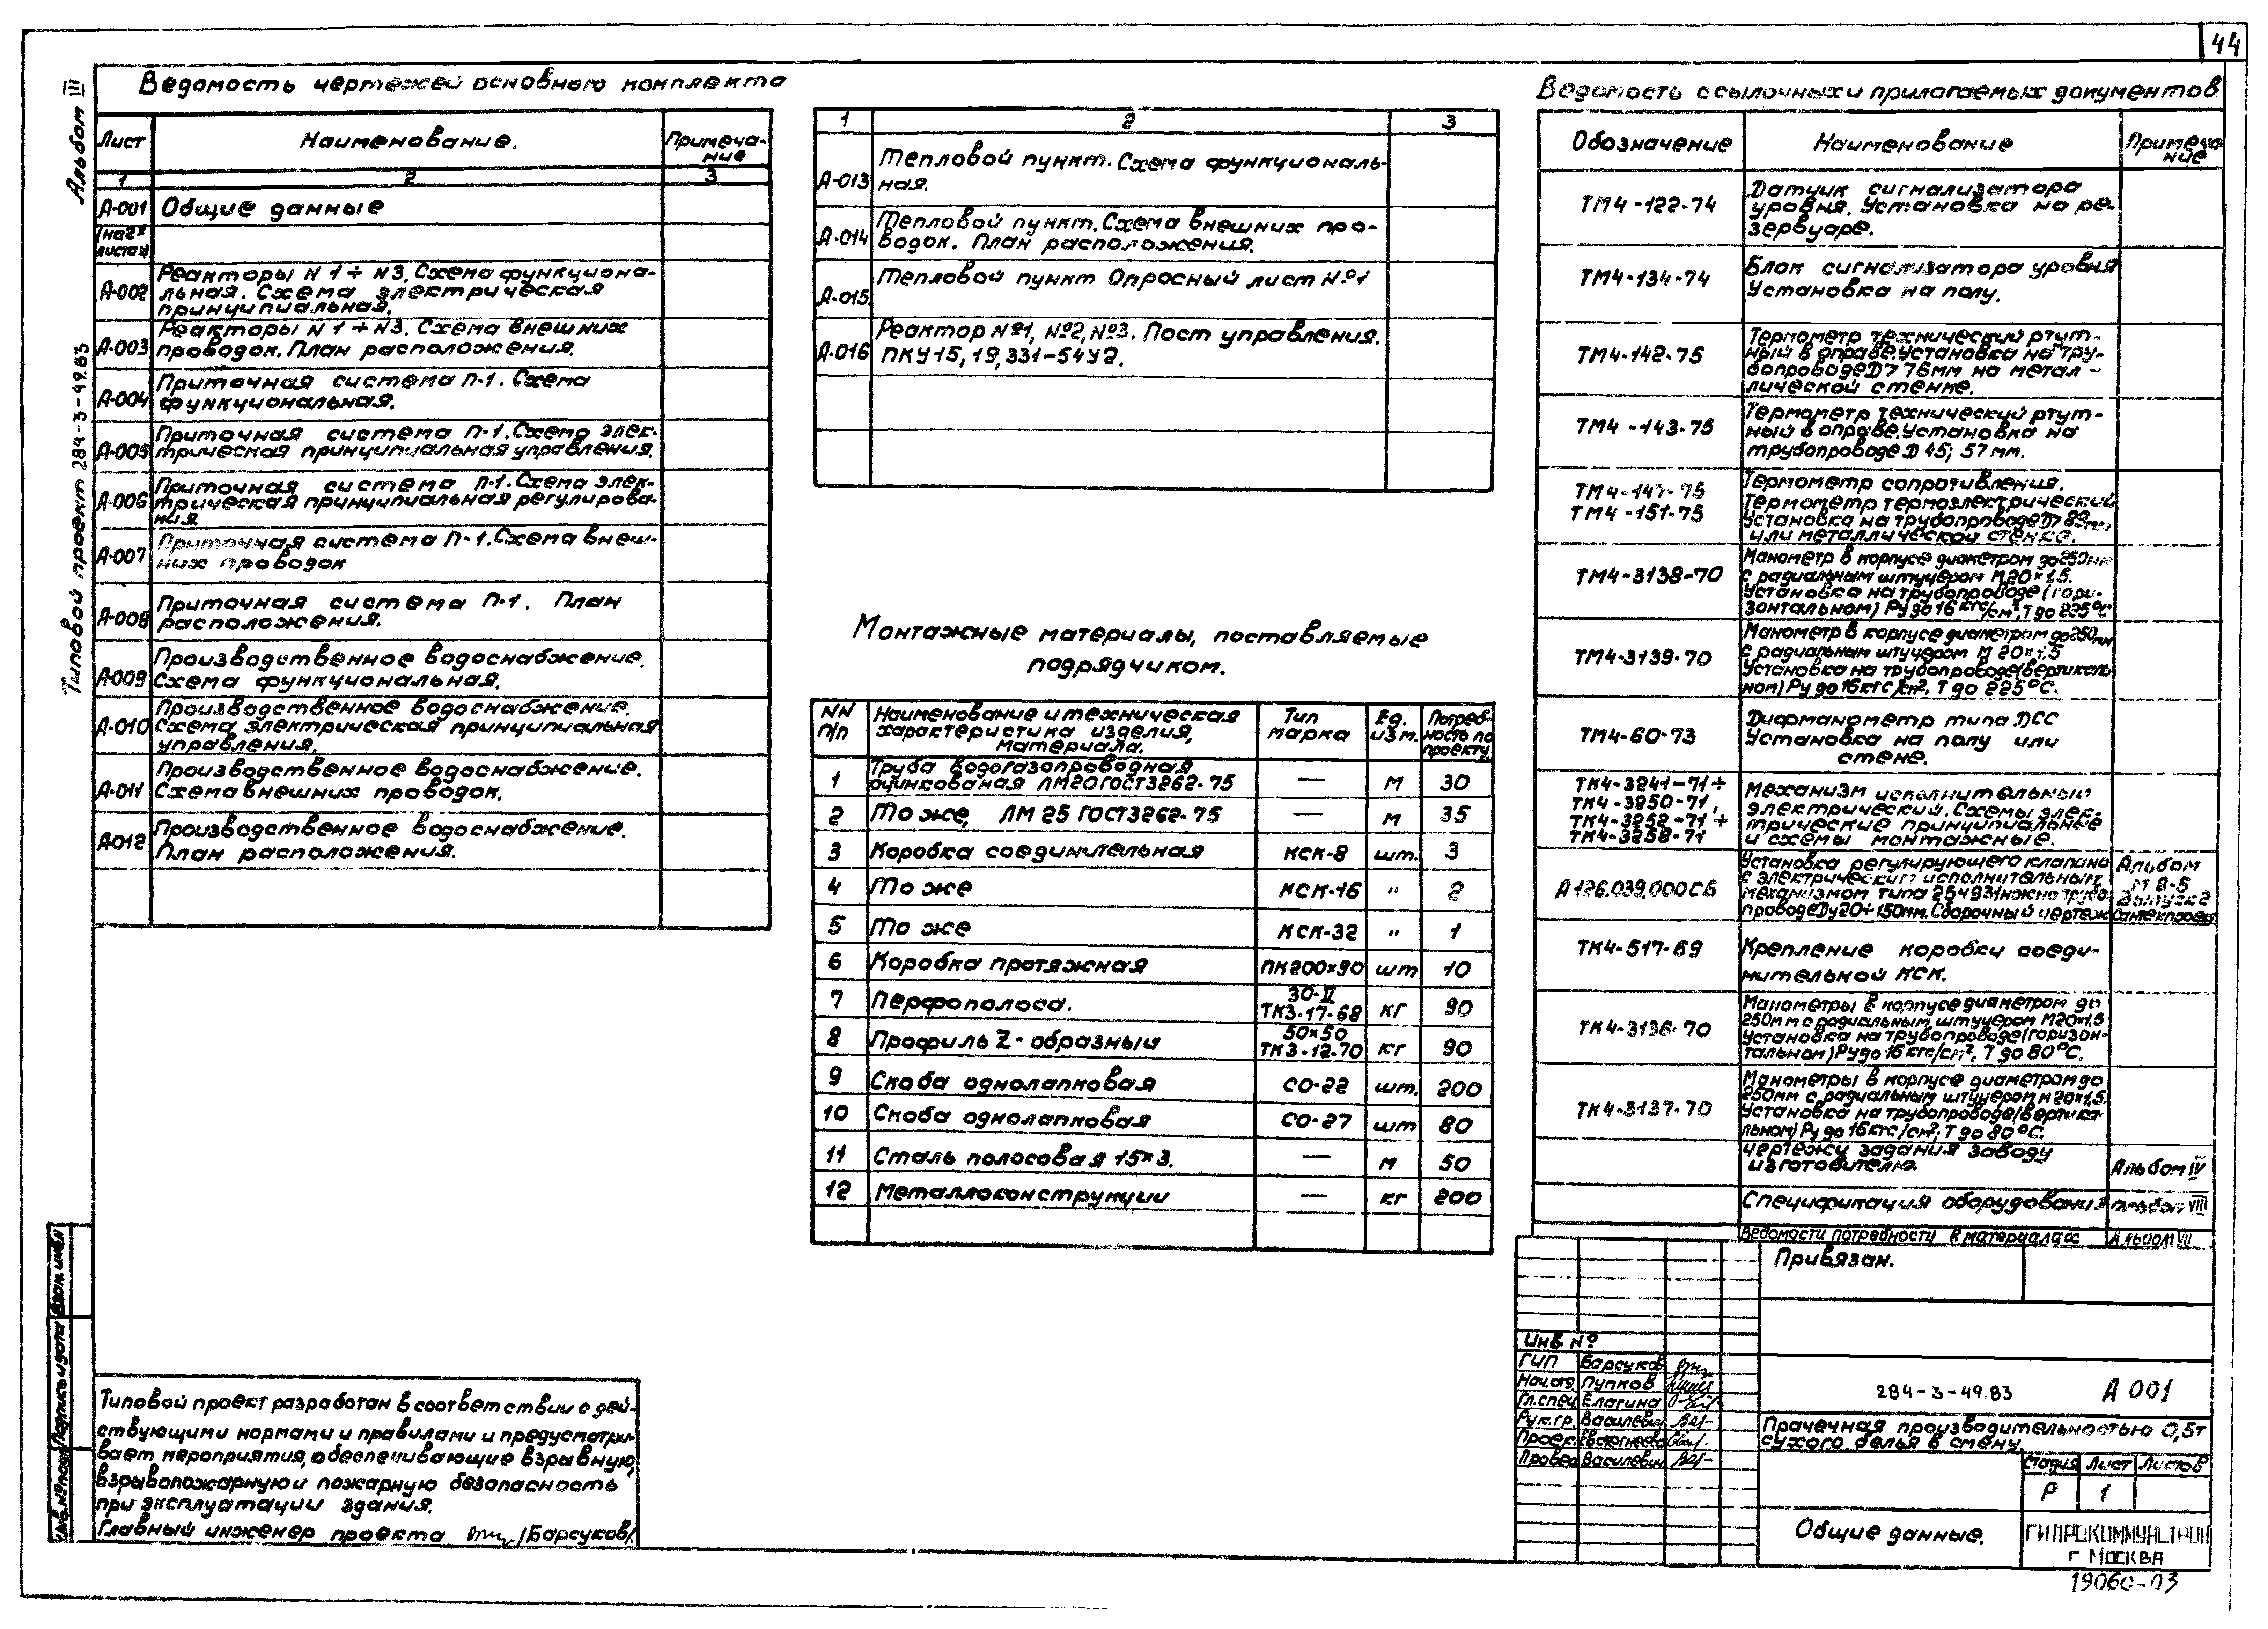 44
Альбом III
Типовой проект 284-3-49.83
Ведомость чертежей основного комплекта
Лист
Наименование.
Примеча-
ние
1
2
3
А-001
Общие данные
(на 2х
листах)
А-002
Реакторы N 1÷N3. Схема функциона-
льная. Схема электрическая
принципиальная.
А-003
Реакторы N 1÷N3. Схема внешних
проводок. План расположения.
А-004
Приточная система П-1. Схема
функциональная.
А-005
Приточная система П-1. Схема элек-
трическая принципиальная управления.
А-006
Приточная система П-1. Схема элек-
трическая принципиальная регулирова-
ния
А-007
Приточная система П-1. Схема внеш-
них проводок
А-008
Приточная система П-1. План
расположения.
А-009
Производственное водоснабжение.
Схема функциональная.
А-010
Производственное водоснабжение.
Схема электрическая принципиальная
управления.
А-011
Производственное водоснабжение.
Схема внешних проводок.
А-012
Производственное водоснабжение.
План расположения.
1
2
3
А-013
Тепловой пункт. Схема функциональ-
ная.
А-014
Тепловой пункт. Схема внешних про-
водок. План расположения.
А-015
Тепловой пункт Опросный лист №1
А-016
Реактор №1, №2, №3. Пост управления.
ПКУ15, 19, 331-54У2.
Монтажные материалы, поставляемые
подрядчиком.
NN
п/п
Наименование и техническая
характеристика изделия,
материала.
Тип
марка
Ед.
изм.
Потреб-
ность по
проекту
1
Труба водогазопроводная
оцинкованая ЛМ20 ГОСТ3262-75
—
м
30
2
То же, ЛМ 25 ГОСТ3262-75
—
м
35
3
Коробка соединительная
КСК-8
шт.
3
4
То же
КСК-16
"
2
5
То же
КСК-32
"
1
6
Коробка протяжная
ПК200×90
шт
10
7
Перфополоса.
30-II
ТК3-17-68
кг
90
8
Профиль Z-образный
50×50
ТК3-12-70
кг
90
9
Скоба однолапковая
СО-22
шт.
200
10
Скоба однолапковая
СО-27
шт
80
11
Сталь полосовая 15×3.
—
м
50
12
Металлоконструкции
—
кг
200
Ведомость ссылочных и прилагаемых документов
Обозначение
Наименование
Примеча-
ние
ТМ4-122-74
Датчик сигнализатора
уровня. Установка на ре-
зервуаре.
ТМ4-134-74
Блок сигнализатора уровня
Установка на полу.
ТМ4-142-75
Термометр технический ртут-
ный в оправе. Установка на тру-
бопроводе D>76мм на метал-
лической стенке.
ТМ4-143-75
Термометр технический ртут-
ный в оправе. Установка на
трубопроводе D 45; 57 мм.
ТМ4-147-75
ТМ4-151-75
Термометр сопротивления.
Термометр термоэлектрический
Установка на трубопроводе D> 89мм,
или металлической стенке.
ТМ4-3138-70
Манометр в корпусе диаметром до 250мм
с радиальным штуцером М20×1,5.
Установка на трубопроводе (гори-
зонтальном) Ру до 16 кгс/см², Т до 225°С
ТМ4-3139-70
Манометр в корпусе диаметром до 250 мм
с радиальным штуцером М 20×1,5
Установка на трубопроводе (вертикаль-
ном) Ру до 16кгс/см². Т до 225°С.
ТМ4-60-73
Дифманометр типа ДСС
Установка на полу или
стене.
ТК4-3241-71÷
ТК4-3250-71,
ТК4-3252-71÷
ТК4-3258-71
Механизм исполнительный
электрический. Схемы элек-
трические принципиальные
и схемы монтажные.
А126.039.000СБ
Установка регулирующего клапана
с электрическим исполнительным
механизмом типа 25ч931нж на трубо-
проводе Dу20÷150мм. Сборочный чертеж
Альбом
М 8-5
Выпуск 2
Сантехпроект
ТК4-517-69
Крепление коробки соеди-
нительной КСК.
ТК4-3136-70
Манометры в корпусе диаметром до
250мм с радиальным штуцером М20×1,5
Установка на трубопроводе (горизон-
тальном) Ру до 16 кгс/см², Т до 80°С.
ТК4-3137-70
Манометры в корпусе диаметром до
250мм с радиальным штуцером М20×1,5.
Установка на трубопроводе (вертика-
льном) Ру до 16кгс/см², Т до 80°С.
Чертежи задания заводу
изготовителю.
Альбом IV
Спецификация оборудования
альбом VIII
Ведомости потребности в материалах
Альбом VII
Привязан.
Инв №
ГИП Барсуков
Нач.отд. Пупков
Гл.спец. Елагина
Рук.гр. Василевич
Проек.
Провер. Василевич
284-3-49.83
А 001
Прачечная производительностью 0,5т
сухого белья в смену.
Стадия Лист Листов
Р 1
Общие данные.
ГИПРОКОММУНСТРОЙ
г Москва
19060-03
Типовой проект разработан в соответствии с дей-
ствующими нормами и правилами и предусматри-
вает мероприятия, обеспечивающие взрывную,
взрывопожарную и пожарную безопасность
при эксплуатации здания.
Главный инженер проекта /Барсуков/.
Инв. № подл. Подпись и дата Взам. инв. №